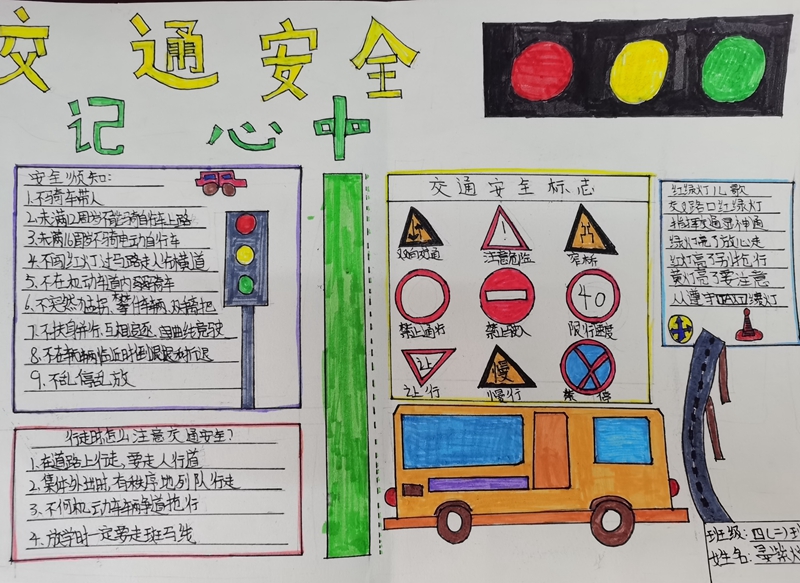 交通安全
记心中
安全须知:
1.不骑车带人
2.未满12周岁不能骑自行车上路
3.未满16周岁不骑电动自行车
4.不闯红灯过马路走人行横道
5.不在机动车道内骑车
6.不突然猛拐、攀扶车辆、双手离把
7.不扶身并行、互相追逐、曲线竞驶
8.不在车辆临近时
9.不乱停乱放
行走时怎么注意交通安全?
1.在道路上行走,要走人行道
2.集体外出时,有秩序地列队行走
3.不同机动车辆争道抢行
4.放学时一定要走斑马线
交通安全标志
双向交通 注意危险 窄桥
40
禁止通行 禁止驶入 限制速度
让
慢
让行 慢行 禁停
红绿灯儿歌
交叉路口红绿灯
指挥交通显神通
绿灯亮了放心走
红灯亮了别抢行
黄灯亮了要注意
人人遵守红绿灯
班级:四(二)班
姓名: